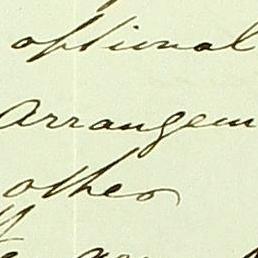 optional
arrangem
other